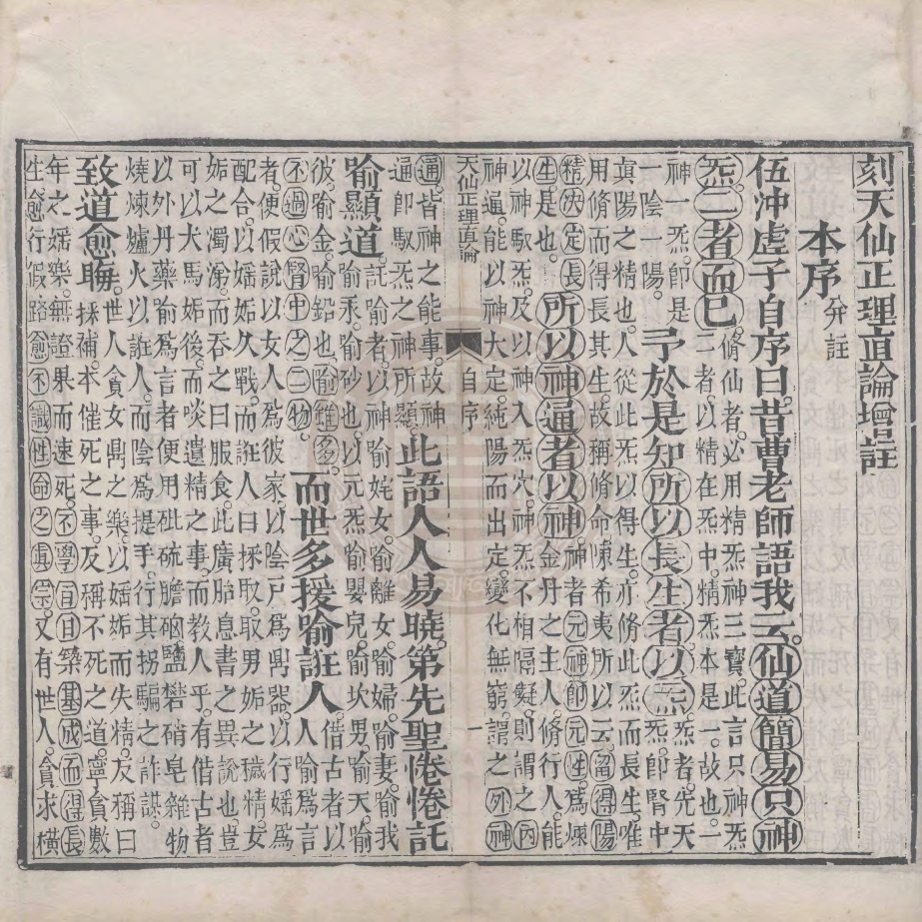 刻天仙正理直論增註
本序 并註
伍冲虛子自序曰昔曹老師語我云仙道簡易只神
炁二者而已
修仙者必用精炁神三寶此言只神炁
二者以精在炁中精炁本是一故也一
神一炁即是
一陰一陽
予於是知所以長生者以炁
炁者先天
炁即腎中
真陽之精也人從此炁以得生亦修此炁而長生唯
用修而得長其生故稱修命陳希夷所以云留得陽
精決定長
生是也
所以神通者以神
神者元神即元性爲煉
金丹之主人修行人能
以神馭炁及以神入炁穴神炁不相隔礙則謂之內
神通能以神大定純陽而出定變化無窮謂之外神
天仙正理直論 自序 一
通皆神之能事故神
通即馭炁之神所顯
此語人人易曉第先聖惓惓託
喻顯道
託喻者以神喻姹女喻離女喻婦喻妻喻我
喻汞喻砂也以元炁喻嬰兒喻坎男喻夫喻
彼喻金喻鉛也喻雖多
不過心腎中之二物
而世多援喻誑人
借古者以
人喻爲言
者便假說以女人爲彼家以陰戶爲鼎器以行婬爲
配合以婬姤久戰而誑人曰採取取男姤之穢精女
姤之濁涕而吞之曰服食此廣胎息書之異說也豈
可以犬馬姤後而啖遺精之事而教人乎有借古者
以外丹藥喻爲言者便用砒硫膽硇鹽礬硝皂雜物
燒煉爐火以誑人而陰爲提手行其拐騙之詐謀
致道愈晦
世人貪女鼎之樂以婬姤而失精反稱曰
採補本催死之事反稱不死之道寧貪數
年之婬樂無證果而速死不學宜甘築基成而得長
生愈行假路愈不識性命之真宗又有世人貪求橫